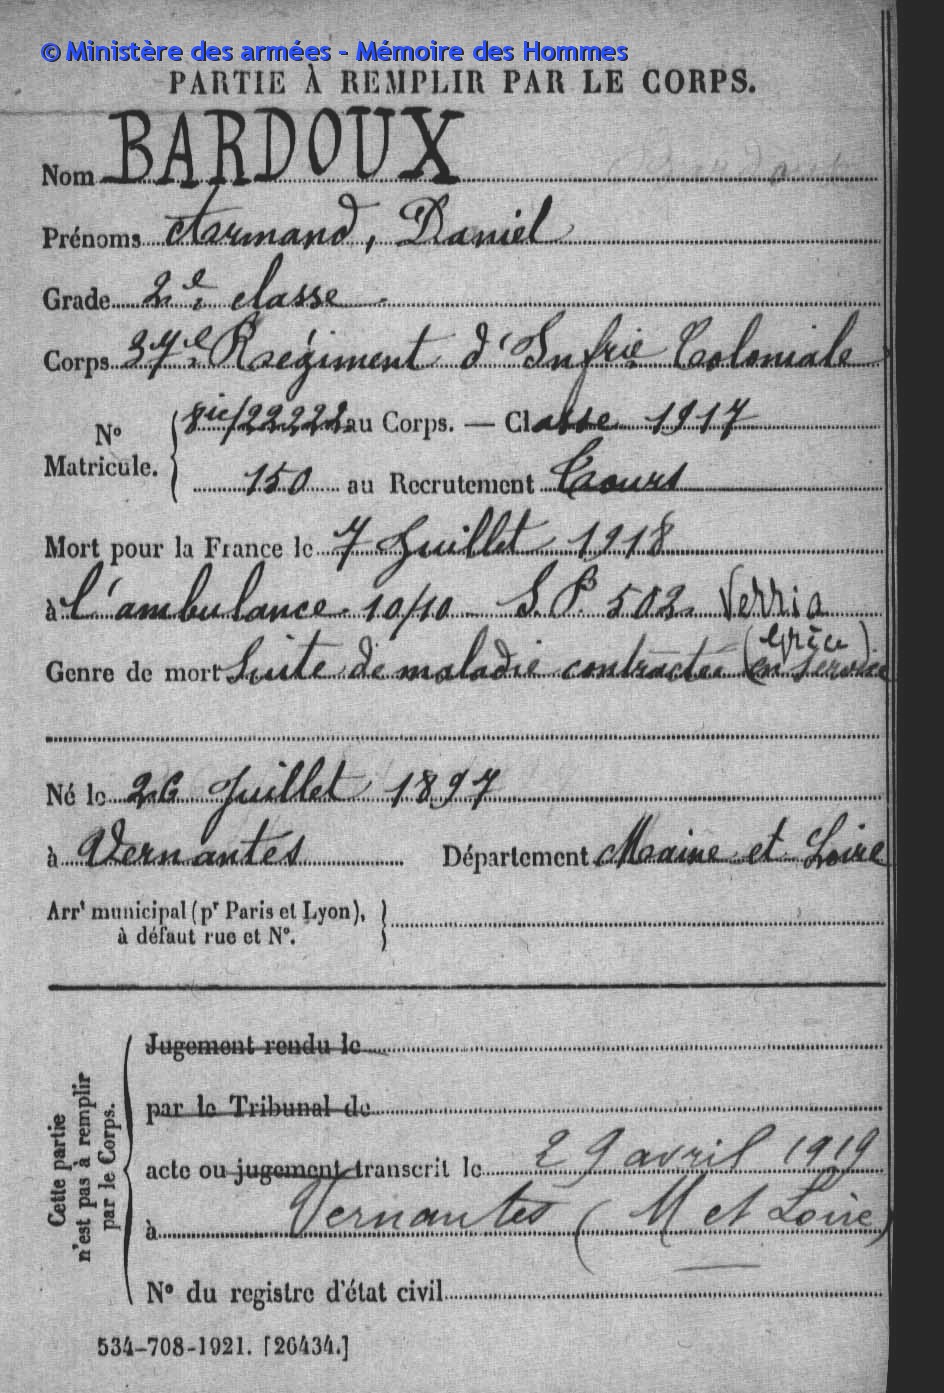 © Ministère des armées - Mémoire des Hommes
PARTIE À REMPLIR PAR LE CORPS.
Nom BARDOUX
Prénoms Armand, Daniel
Grade 2e classe
Corps 37e Régiment d'Infrie Coloniale
No Matricule. 8ic/22222 au Corps. — Classe 1917
150 au Recrutement Tours
Mort pour la France le 7 Juillet 1918
à l'ambulance 10/10 S.P. 502 Verria
(Grèce)
Genre de mort Suite de maladie contractée en service
Né le 26 Juillet 1897
à Vernantes Département Maine et Loire
Arrt municipal (pr Paris et Lyon),
à défaut rue et No.
Cette partie
n'est pas à remplir
par le Corps.
Jugement rendu le
par le Tribunal de
acte ou jugement transcrit le 29 avril 1919
à Vernantes (M et Loire)
No du registre d'état civil
534-708-1921. [26434.]